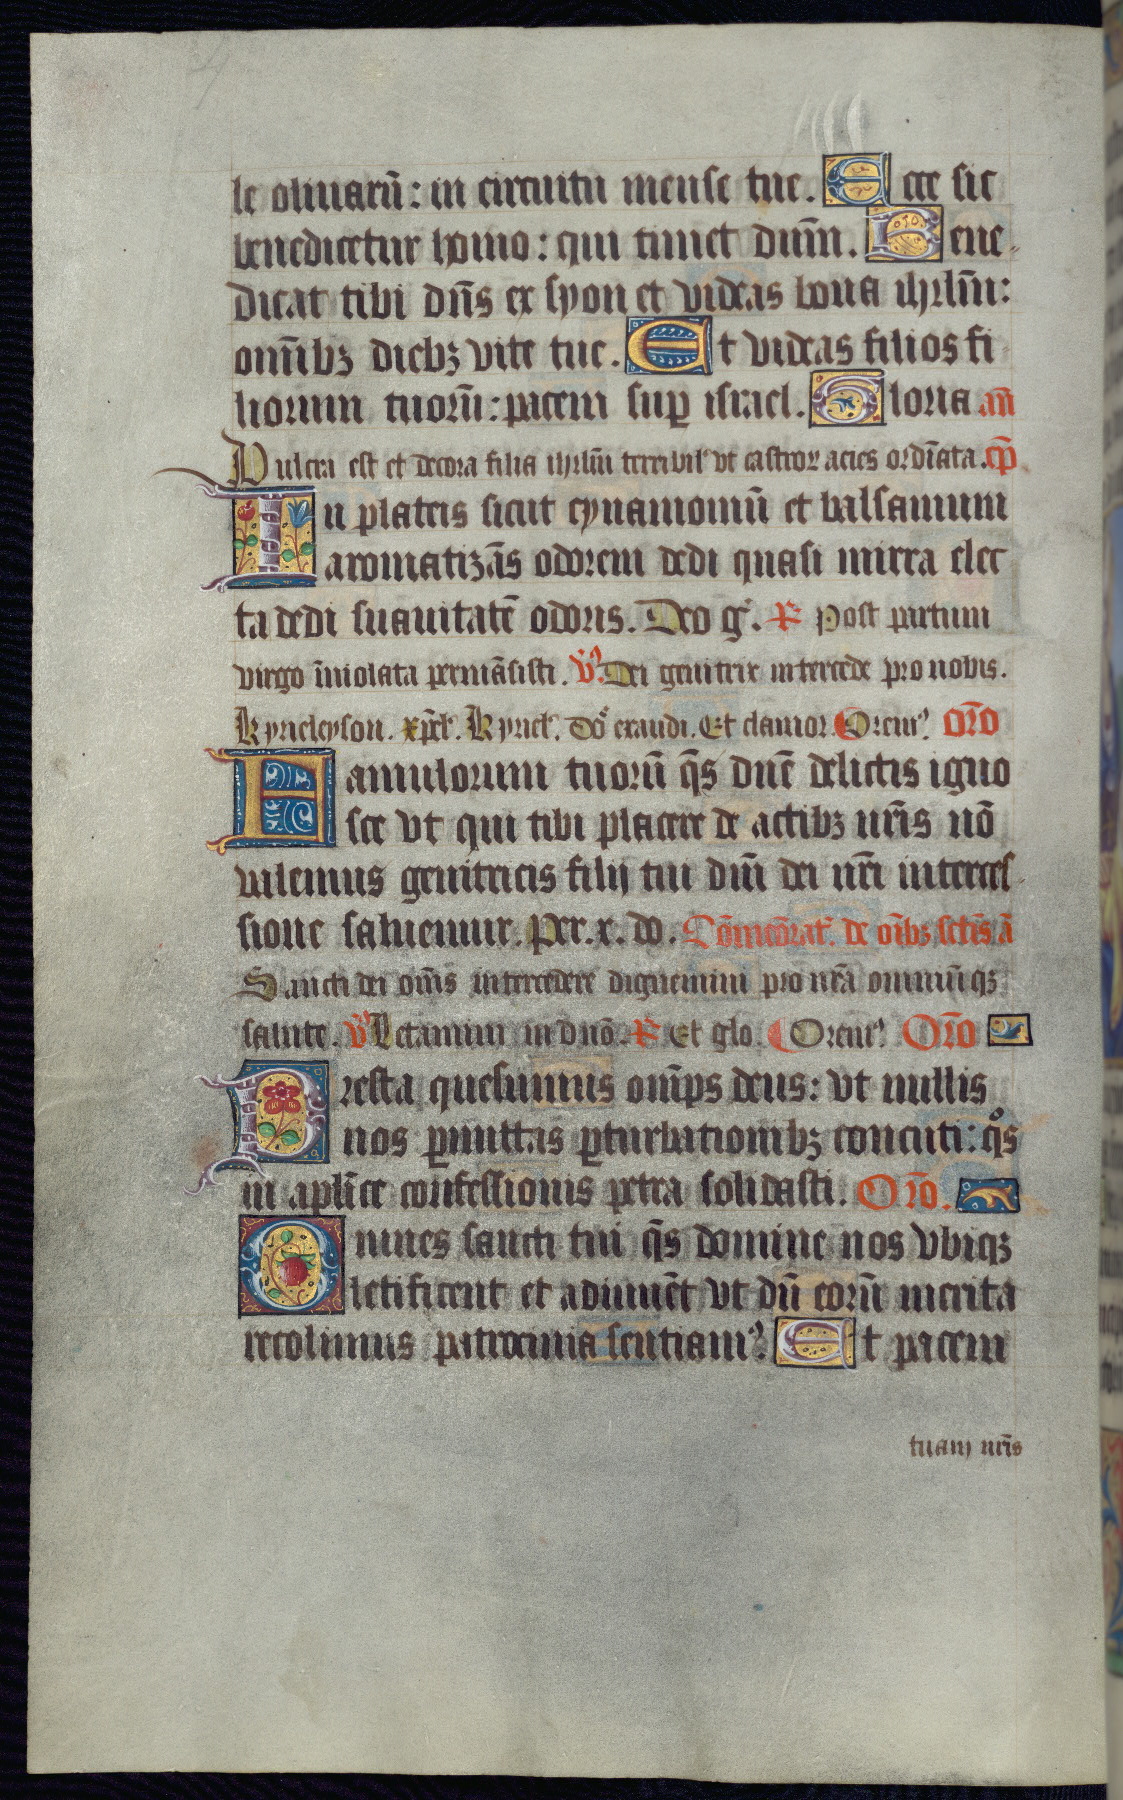 le oliuarū: in circuitu mense tue. Ecce sic
benedicetur homo: qui timet dūm. Bene-
dicat tibi dn̄s ex syon et videas bona ihrlm̄:
omībꝫ diebꝫ vite tue. Et videas filios fi
liorum tuorū: pacem suꝑ israel. Gloria an̄
Pulcra est et decora filia ihrlm̄ terribil' vt castroꝝ acies ordīata. cp̄
In plateis sicut cynamomū et balsamum
aromatizās odorem dedi quasi mirra elec
ta dedi suauitatē odoris. Deo g̃. ℟ Post partum
virgo īuiolata permāsisti. ℣ Dei genitrix intercede pro nobis.
Kyrieleyson. xp̄el'. Kyriel'. Dō exaudi. Et clamor. Orem' Oro
Famulorum tuorū q̄s dn̄e delictis igno
sce vt qui tibi placere de actibꝫ nr̄is nō
valemus genitricis filij tui dn̄i dei nr̄i interces-
sione saluemur. Per. x. do. Cōmēorat'. de oībꝫ sctīs ā
Sancti dei om̄s intercedere dignemini pro nr̄a omniūqꝫ
salute. ℣ Letamini in dnō. ℟ Et glo. Orem' Oro
Presta quesumus om̄ps deus: vt nullis
nos ꝑmittas ꝑturbationibꝫ concuti: q̊s
in apl'ice confessionis petra solidasti. Oro.
Omnes sancti tui q̄s domine nos vbiqꝫ
letificent et adiuuēt vt dū eorū merita
recolimus patrocinia sentiam' Et pacem
tuam nr̄is